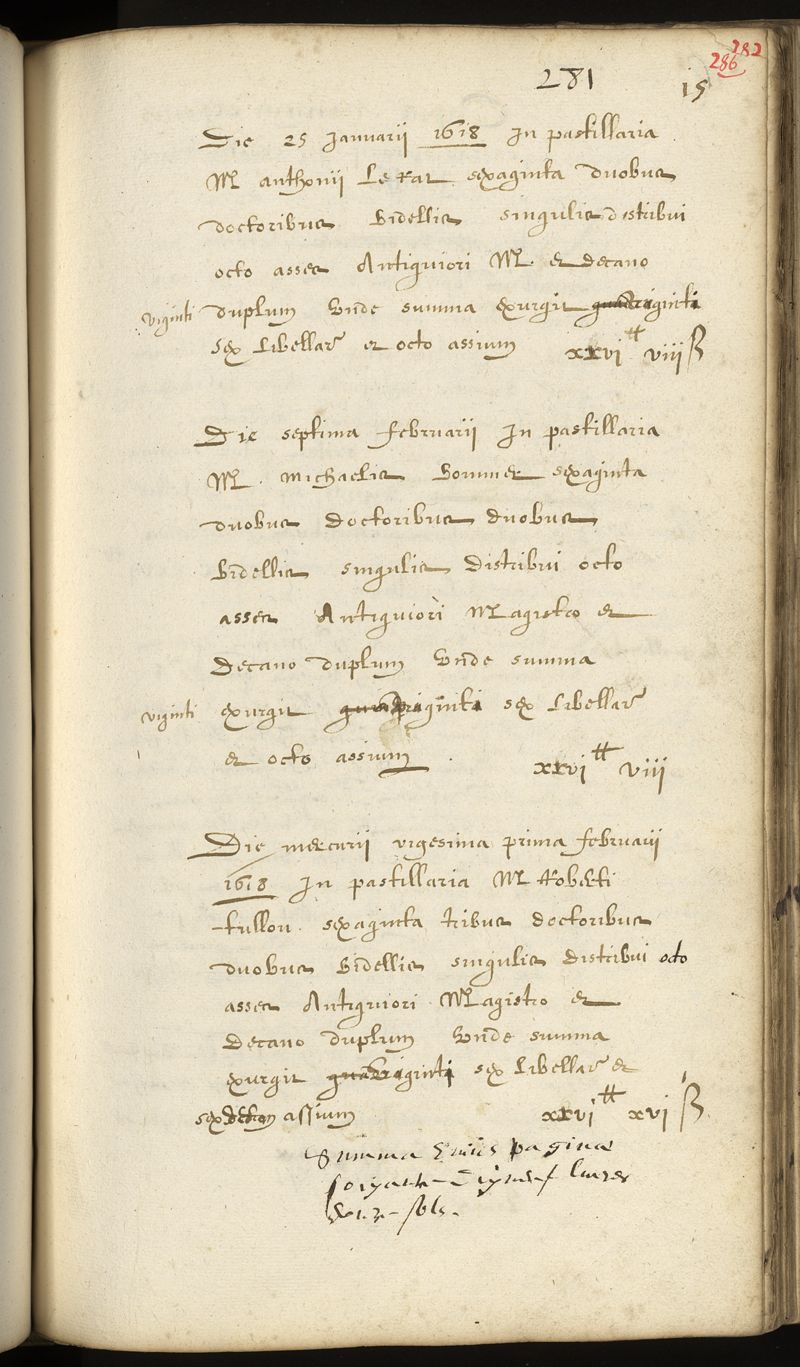 282
286
281
15
Die 25 Januarii 1618 In pastillaria
M Anthonii Le Rat sexaginta duobus
doctoribus Bidellis singulis distribui
octo asses Antiquiori M. et decano
viginti duplum Unde summa exurgit quadraginti
sex Libellar et octo assium xxvi ₶ viii ß
Die septima februarii In pastillaria
M. Michaelis sexaginta
duobus doctoribus duobus
Bidellis singulis distribui octo
asses Antiquiori Magistro et
Decano duplum Unde summa
viginti exurgit quadraginti sex Libellar
et octo assium . xxvi ₶ viii
Die mercurii vigesima prima februarii
1618 In pastillaria M Roberti
tullou sexaginta tribus doctoribus
duobus Bidellis singulis distribui octo
asses Antiquiori Magistro et
Decano duplum Unde summa
exurgit quadraginti sex Libellar et
sexdecim assium xxvi ₶ xvi ß
Summa huius pagina
livres
solz